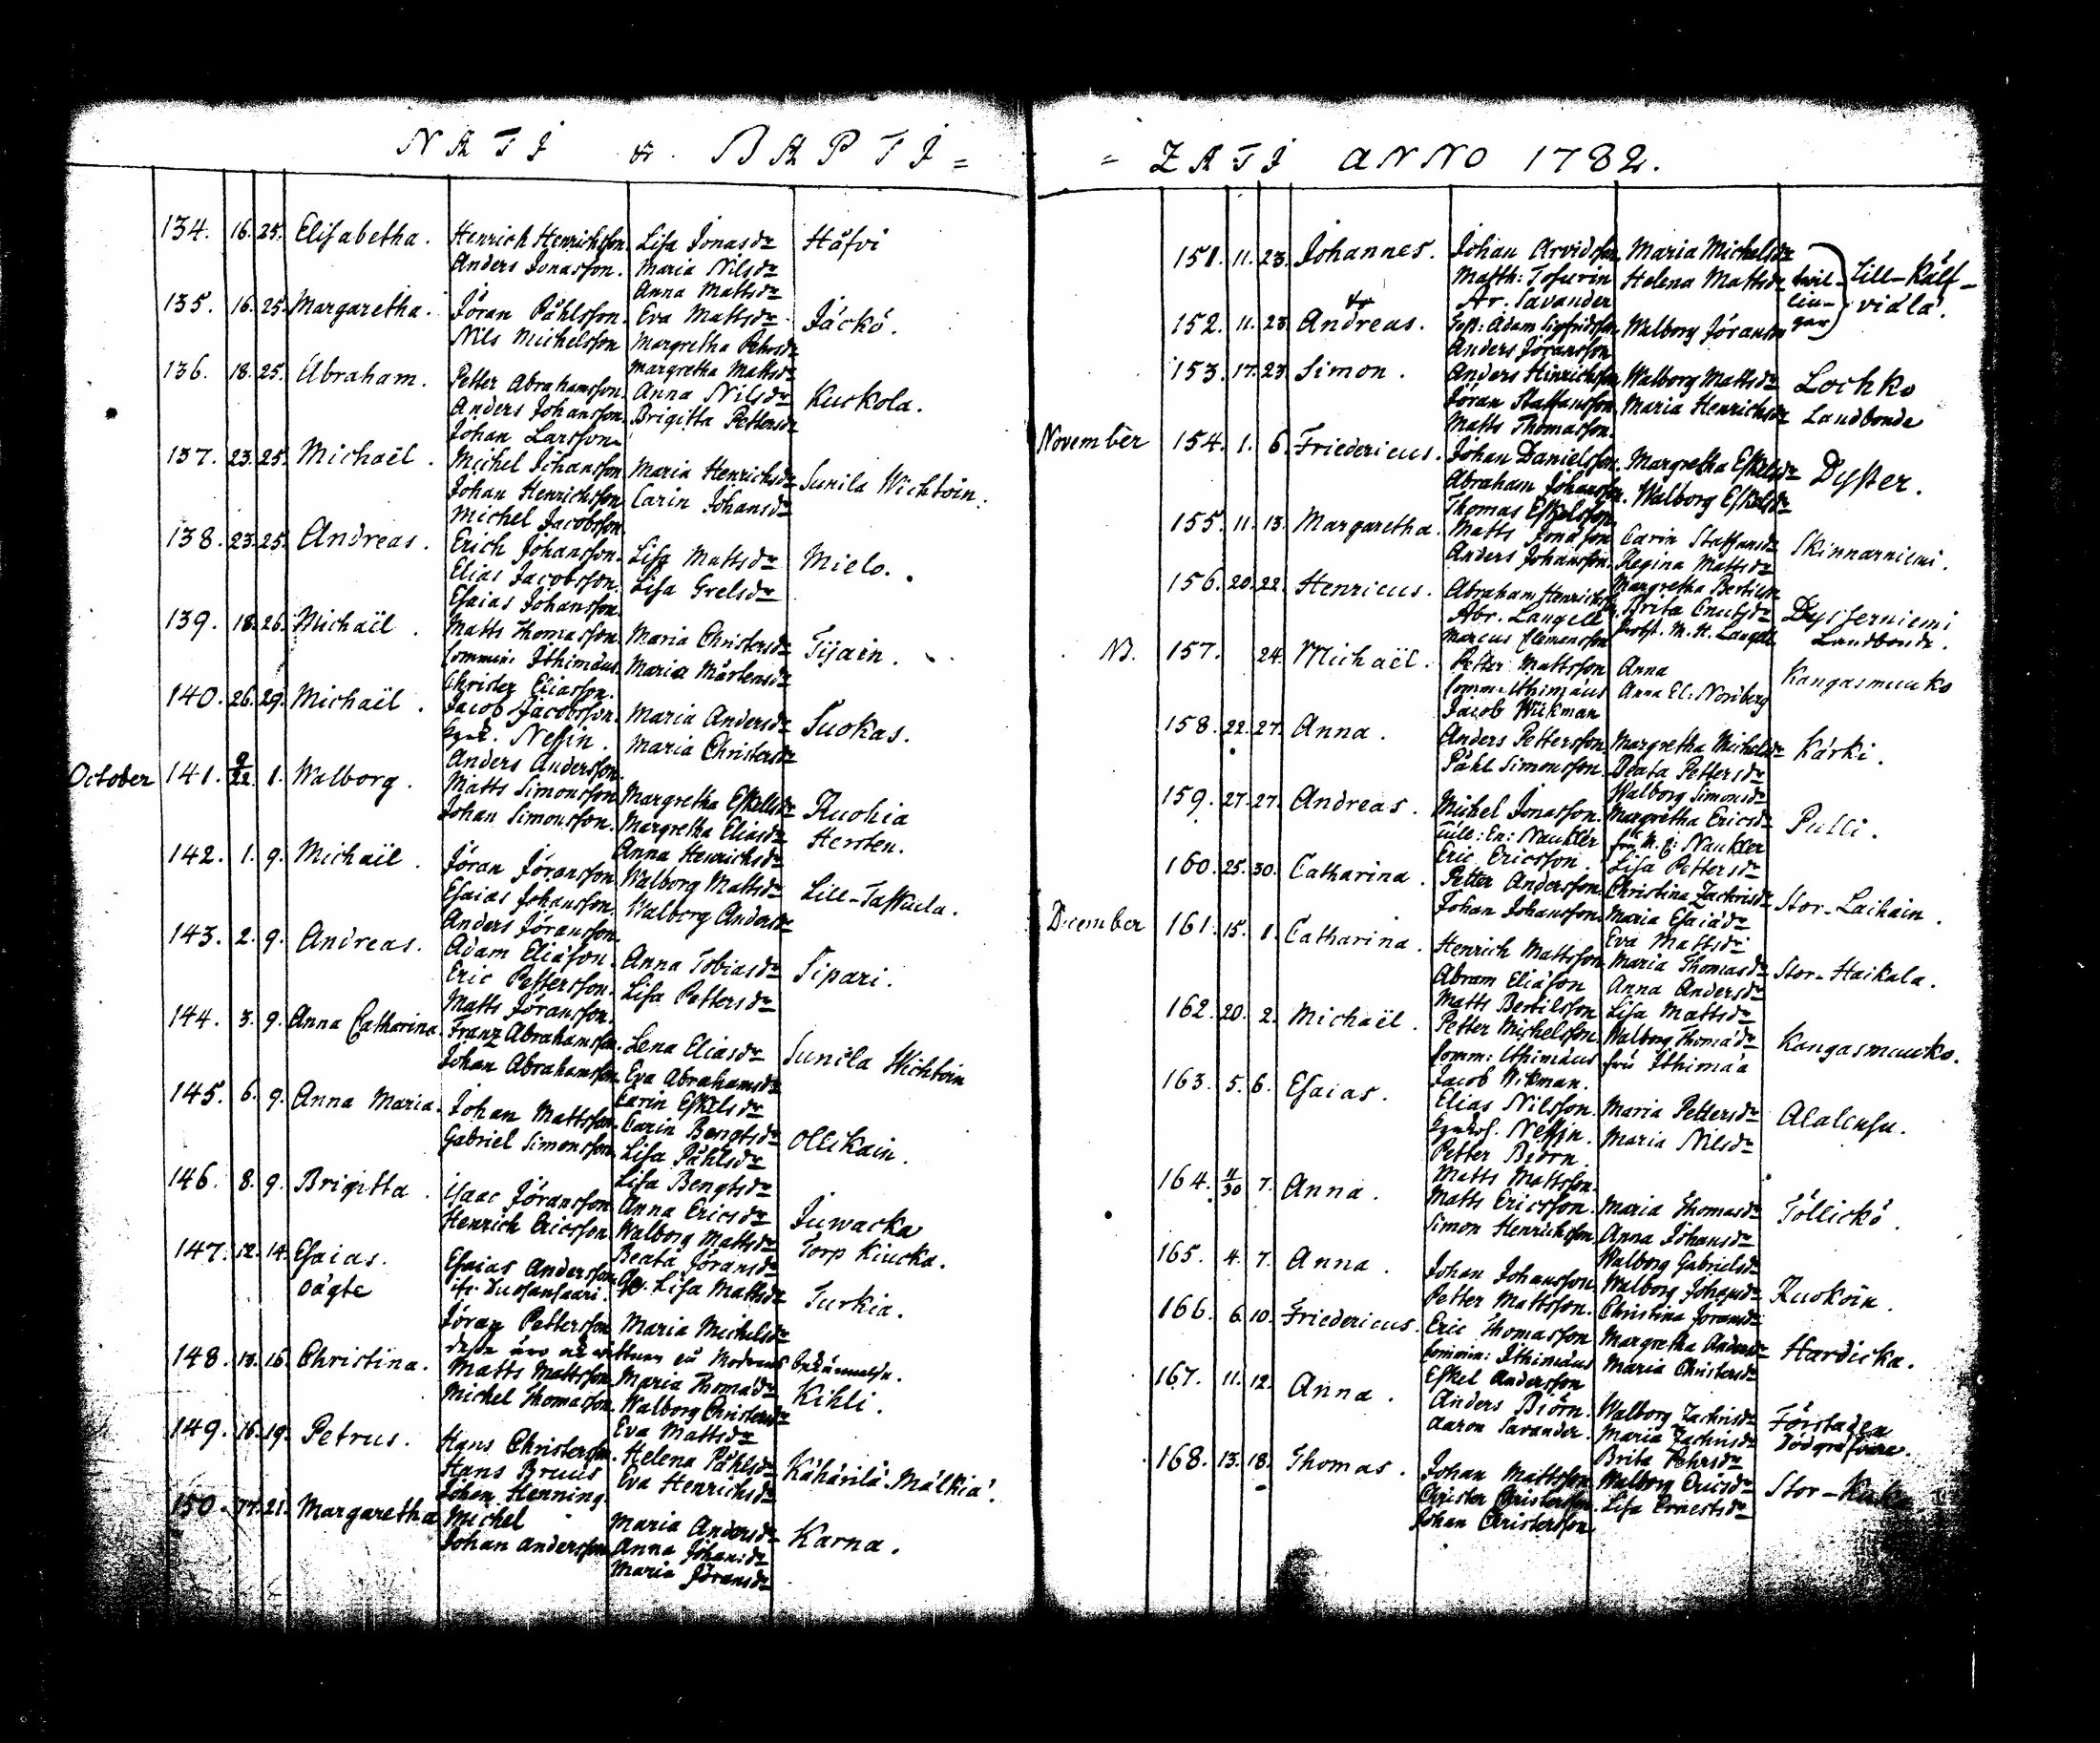 NATI & BAPTI =
134. 16. 25. Elisabetha. Henrich Henrichsson Lisa Jonasdr Häfvi
Anders Jonasson. Maria Nilsdr
Anna Mattsdr
135. 16. 25. Margaretha. Jöran Påhlsson. Eva Mattsdr Jäckö.
Nils Michelsson Margretha Pehrsdr
Margretha Mattsdr
136. 18. 25. Abraham. Petter Abrahamsson. Anna Nilsdr Kuckola.
Anders Johansson. Brigitta Pettersdr
Johan Larsson
137. 23. 25. Michaël. Michel Johansson Maria Henrichsdr Sunila Wichtoin.
Johan Henrichsson Carin Johansdr
Michel Jacobsson
138. 23. 25. Andreas. Erich Johansson. Lisa Mattsdr Mielo.
Elias Jacobsson. Lisa Grelsdr
Esaias Johansson
139. 18. 26. Michaël. Matts Thomasson. Maria Christersdr Tijain.
Commin: Ithimæus. Maria Mårtensdr
Christer Eliasson.
140. 26. 29. Michaël. Jacob Jacobsson. Maria Andersdr Suokas.
Nessin. Maria Christersdr
Anders Andersson.
October 141. 9/22 1. Walborg. Matts Simonsson Margretha Eskelsdr Ruohia
Johan Simonsson. Margretha Eliasdr Hersten.
Anna Henrichsdr
142. 1. 9. Michaël. Jöran Jöransson Walborg Mattsdr Lill-Taskula.
Esaias Johansson. Walborg Andersdr
Anders Jöransson
143. 2. 9. Andreas. Adam Eliäson. Anna Tobiasdr Sipari.
Eric Pettersson. Lisa Pettersdr
Matts Jöransson
144. 3. 9. Anna Catharina. Franz Abrahamsson. Lena Eliasdr Sunila Wichtoin
Johan Abrahamsson Eva Abrahamsdr
Carin Eskelsdr
145. 6. 9. Anna Maria. Johan Mattsson. Carin Bengtsdr Ollikain.
Gabriel Simonsson Lisa Påhlsdr
Lisa Bengtsdr
146. 8. 9. Brigitta. Isaac Jöransson Anna Ericsdr Juwacka
Henrich Ericsson Walborg Mattsdr Torp Kiucka.
Beata Jöransdr
147. 12. 14. Esaias. Esaias Andersson Lisa Mattsdr Turkia.
oägte
Jöran Pettersson Maria Michelsdr
desse äro Modrens bekännelse.
148. 13. 16. Christina. Matts Mattsson Maria Thomädr Kihli.
Michel Thomasson Walborg Christersdr
Eva Mattsdr
149. 16. 19. Petrus. Hans Christersson. Helena Påhlsdr Kähärilä Mälkiä.
Hans Bruus Eva Henrichsdr
Johan Henning.
150. 17. 21. Margaretha Michel Maria Andersdr Karna.
Johan Andersson Anna Johansdr
Maria Jöransdr
= ZATI ANNO 1782.
151. 11. 23. Johannes. Johan Arvidsson Maria Michelsdr twil- Lill-Kälf-
Matth: Tosurin Helena Mattsdr lin- vidlä.
Ar. Savander gar
152. 11. 23 Andreas. Adam Sigfridsson Walborg Jöransdr
Anders Jöransson
153. 17. 23 Simon. Anders Hinrichsson Walborg Mattsdr Lochko
Jöran Staffansson Maria Henrichsdr Landbonde
Matts Thomasson.
November 154. 1. 6. Friedericus. Johan Danielsson. Margretha Eskelsdr Dyster.
Abraham Johansson. Walborg Eskelsdr
Thomas Eskelsson
155. 11. 13. Margaretha. Matts Jonason Carin Staffansdr Skinnarniemi.
Anders Johansson. Regina Mattsdr
Margretha Bertilsdr
156. 20. 22. Henricus. Abraham Henrichss. Brita Cnutsdr Dysterniemi
Abr. Langell M. H. Langell Landbonde.
Marcus Clemensson
N. 157. 24. Michaël. Petter Mattsson Anna Kangasmuuko
Comm: Ithimæus Anna El: Noriberg
Jacob Wikman
158. 22. 27. Anna. Anders Pettersson. Margretha Michelsdr Kärki.
Påhl Simonsson Beata Pettersdr
Walborg Simonsdr
159. 27. 27. Andreas. Michel Jonasson. Margretha Ericsdr Pulli.
En: Naukler fru M. E: Naukler
Eric Ericsson. Lisa Pettersdr
160. 25. 30. Catharina. Petter Andersson. Christina Zachrisdr Stor-Laihain.
Johan Johansson. Maria Esaiädr
Eva Mattsdr
December 161. 15. 1. Catharina. Henrich Mattsson Maria Thomasdr Stor-Haikala.
Abram Eliäson Anna Andersdr
Matts Bertilsson Lisa Mattsdr
162. 20. 2. Michaël. Petter Michelsson. Walborg Thomädr Kangasmuuko.
Comm: Ithimäus fru Ithimäa
Jacob Wikman.
163. 5. 6. Esaias. Elias Nilsson. Maria Pettersdr Alalcusu.
Nessin. Maria Nilsdr
Petter Biörn.
Matts Mattsson.
164. 11/30 7. Anna. Matts Ericsson. Maria Thomasdr Töllickö.
Simon Henrichsson. Anna Johansdr
Walborg Gabrielsdr
165. 4. 7. Anna. Johan Johansson Walborg Johansdr Ruokoin.
Petter Mattsson. Christina Jöransdr
166. 6. 10. Friedericus. Eric Thomasson Margretha Andersdr Hardicka.
Commin: Ithimäus Maria Christersdr
Eskel Andersson
167. 11. 12. Anna. Anders Biörn. Walborg Zachrisdr Förstaden
Aaron Savander. Maria Zachrisdr Dödgräfvare.
Brita Pehrsdr
168. 13. 18. Thomas. Johan Mattsson. Walborg Ericsdr Stor-
Christer Christersson. Lisa Ernestsdr
Johan Christersson